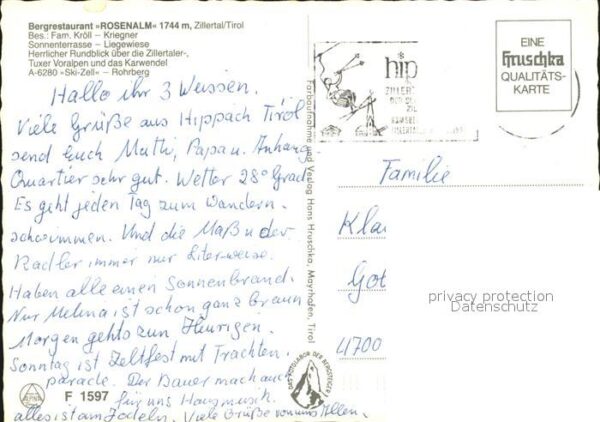 Bergrestaurant »ROSENALM« 1744 m, Zillertal/Tirol
Bes.: Fam. Kröll – Kriegner
Sonnenterrasse – Liegewiese
Herrlicher Rundblick über die Zillertaler-,
Tuxer Voralpen und das Karwendel
A-6280 »Ski-Zell« – Rohrberg
Hallo ihr 3 Weissen.
Viele Grüße aus Hippach Tirol
send Euch Mutti, Papa u. Anhang
Quartier sehr gut. Wetter 28° Grad
Es geht jeden Tag zum Wandern.
schwimmen. Und die Maß u der
Radler immer nur Literweise.
Haben alle einen Sonnenbrand.
Nur Melina ist schon ganz braun
Morgen gehts zum Heurigen.
Sonntag ist Zeltfest mit Trachten.
parade. Der Bauer mach auc
für uns Hausmusik.
alles ist am Jodeln. Viele Grüße von uns Allen.
F 1597
Farbaufnahme und Verlag Hans Hruschka, Mayrhofen, Tirol
DAS EDELLABOR DER BERGSTEIGER
hip
ZILLER
EINE
Hruschka
QUALITÄTS-
KARTE
Familie
Kla
Got
4700
privacy protection
Datenschutz